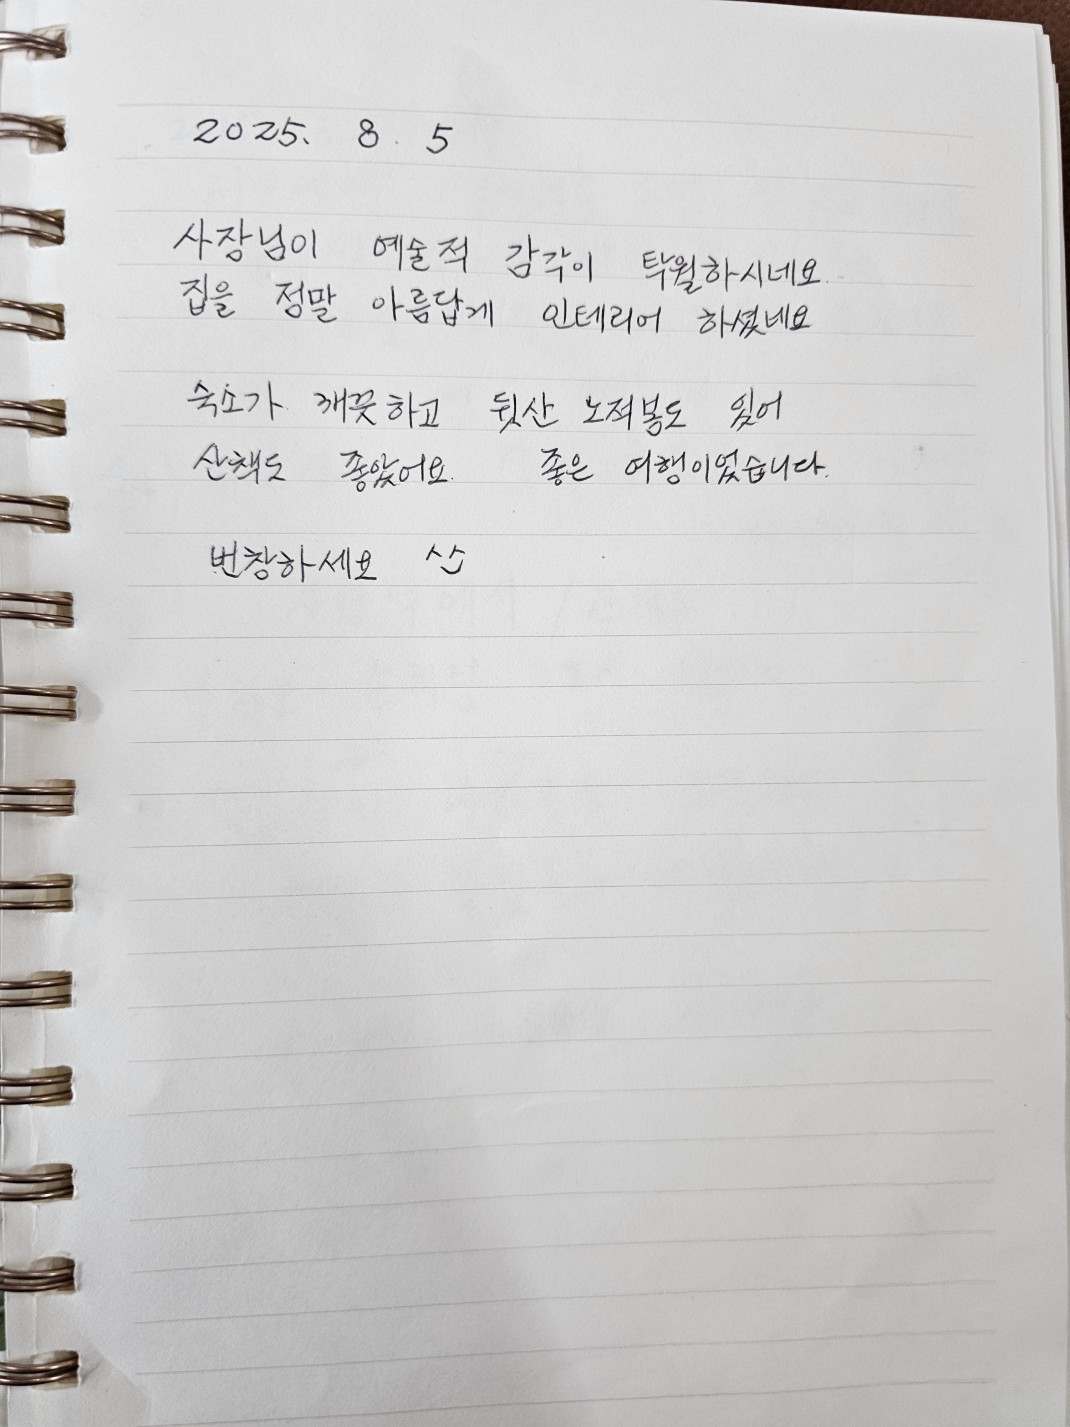 2025. 8. 5
사장님이 예술적 감각이 탁월하시네요.
집을 정말 아름답게 인테리어 하셨네요
숙소가 깨끗하고 뒷산 노적봉도 있어
산책도 좋았어요. 좋은 여행이었습니다.
번창하세요 ^^